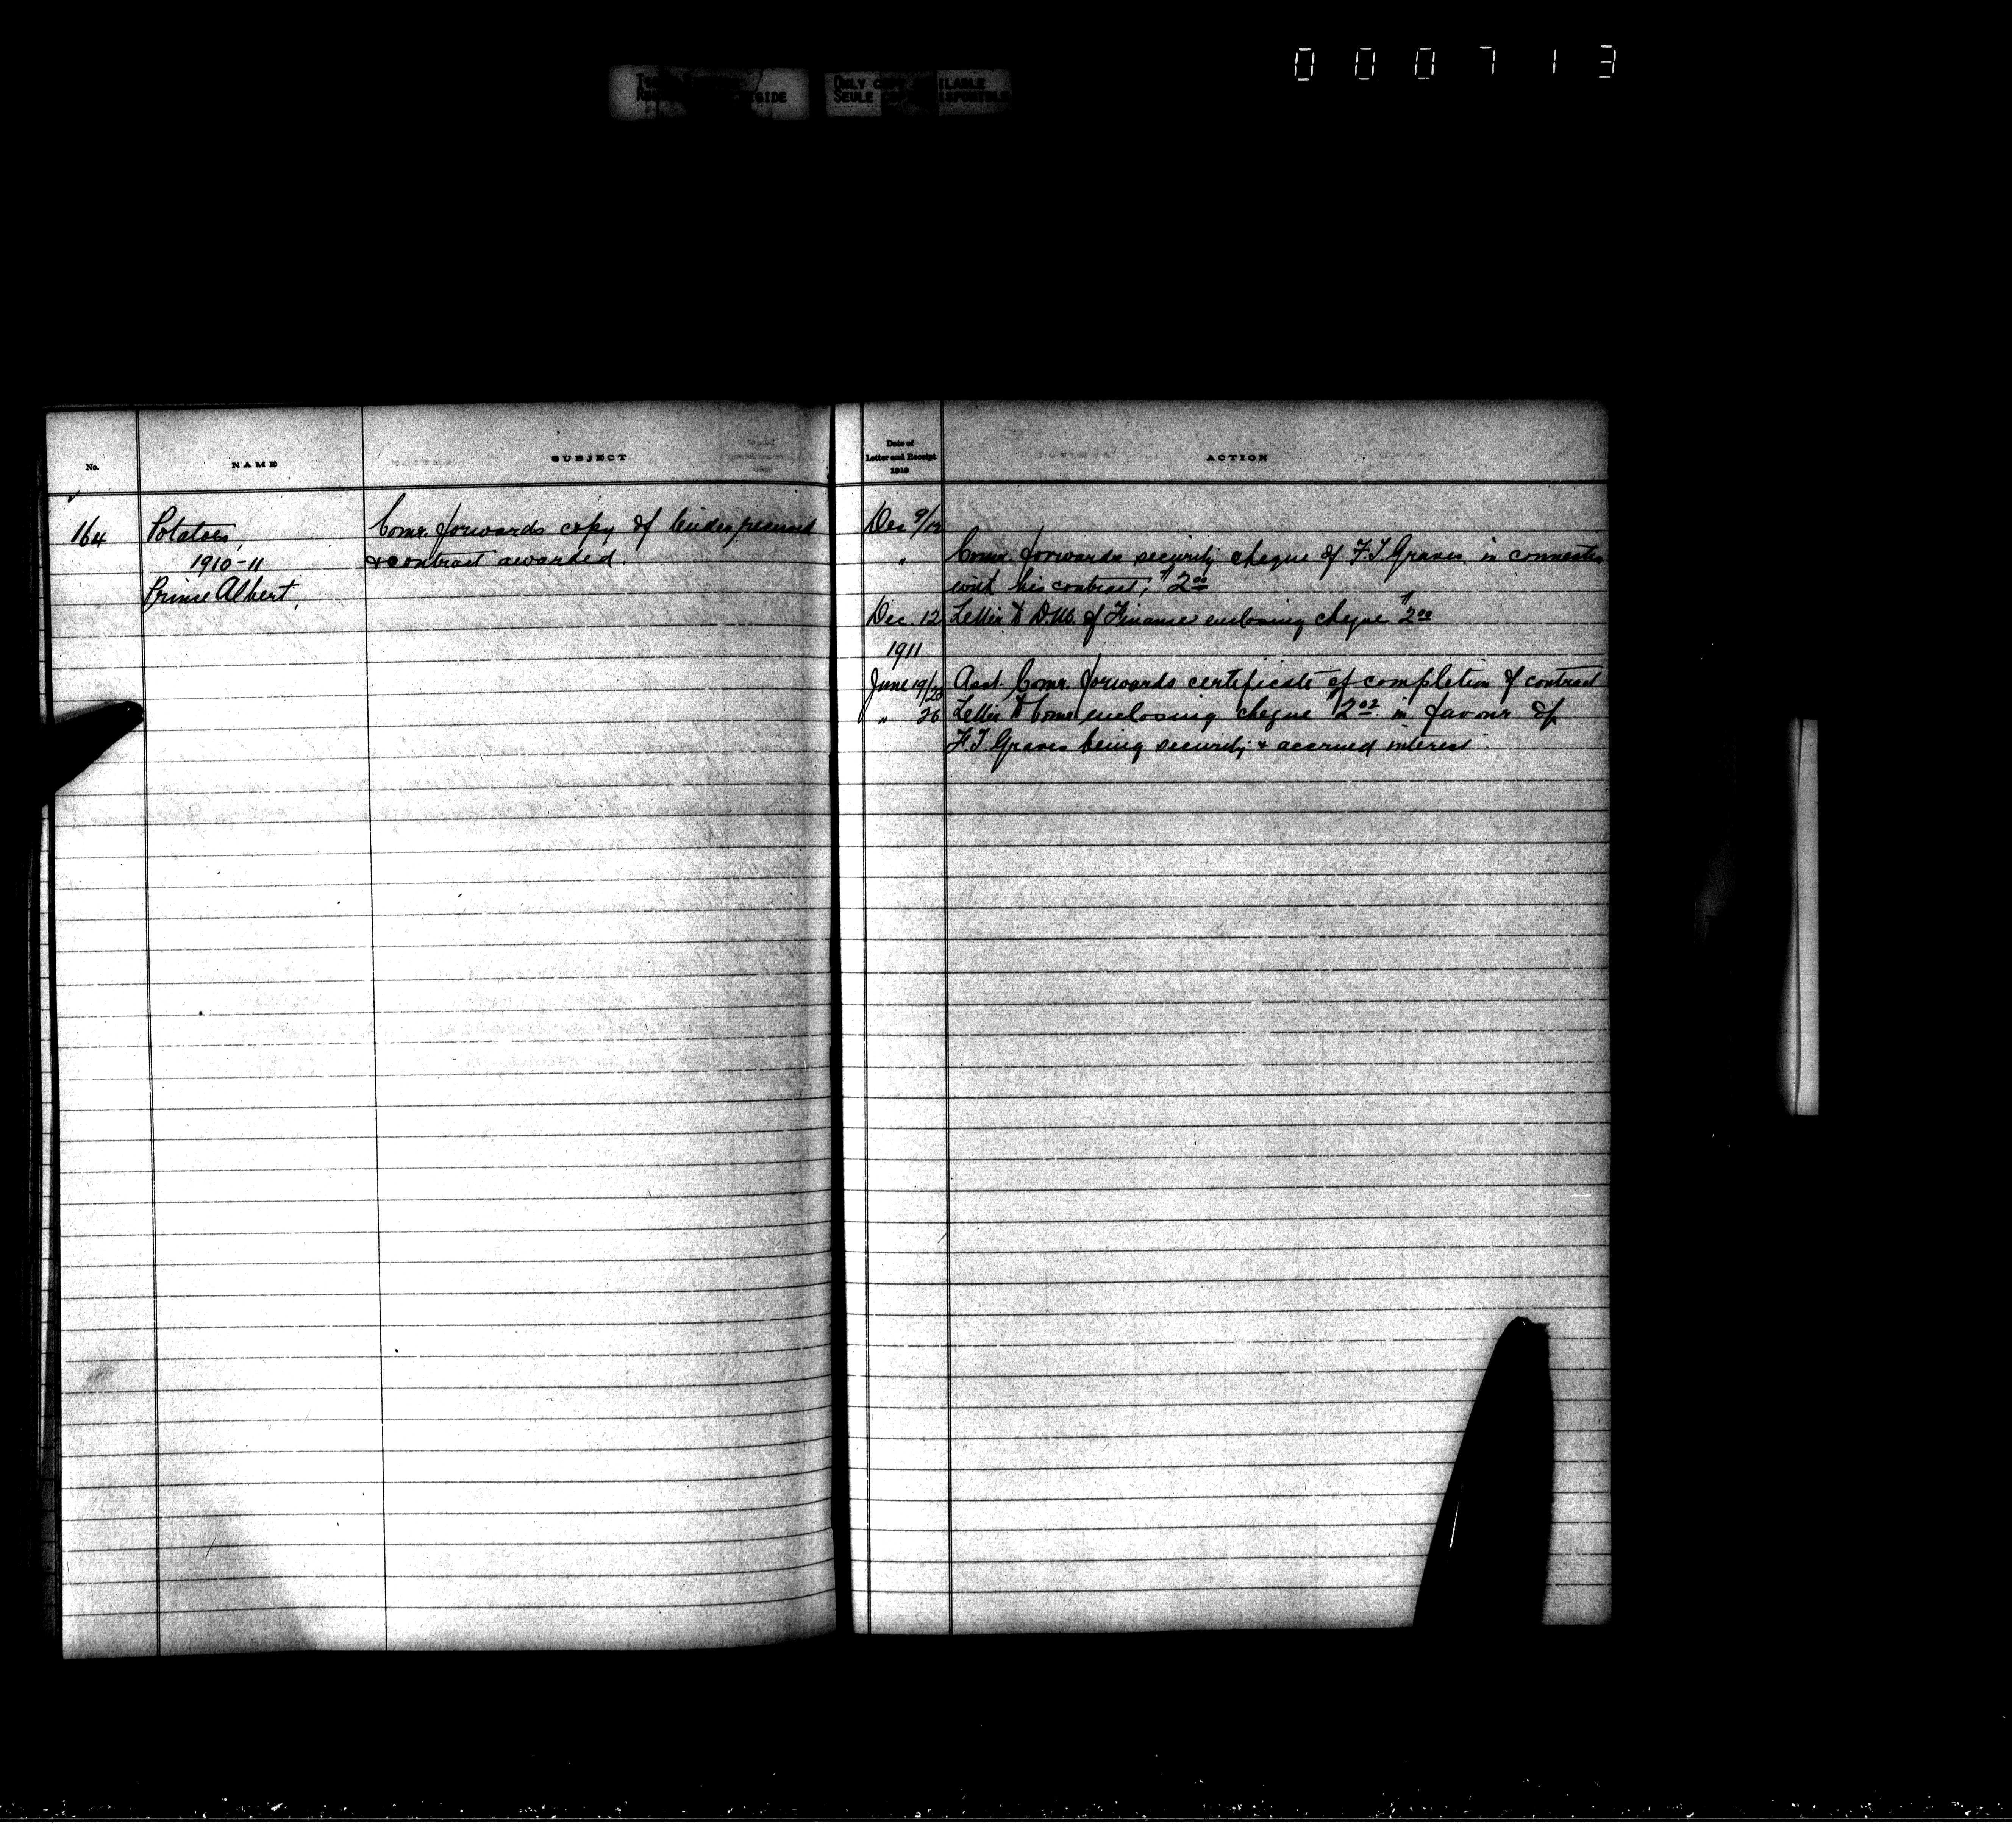 000713
ONLY COPY AVAILABLE
SEULE COPIE DISPONIBLE
No.
NAME
SUBJECT
Date of
Letter and Receipt
1910
ACTION
164
Potatoes,
1910-11
Prince Albert,
Comr. forwards copy of tender received
& contract awarded.
Dec 9/12
" Comr. forwards security cheque of F.J. Graves in connection
with his contract, $2.00
Dec. 12 Letter to D.M. of Finance enclosing cheque $2.00
1911
June 19/23 Asst. Comr. forwards certificate of completion of contract
" 26 Letter to Comr. enclosing cheque $2.02 in favour of
F.J. Graves being security & accrued interest.